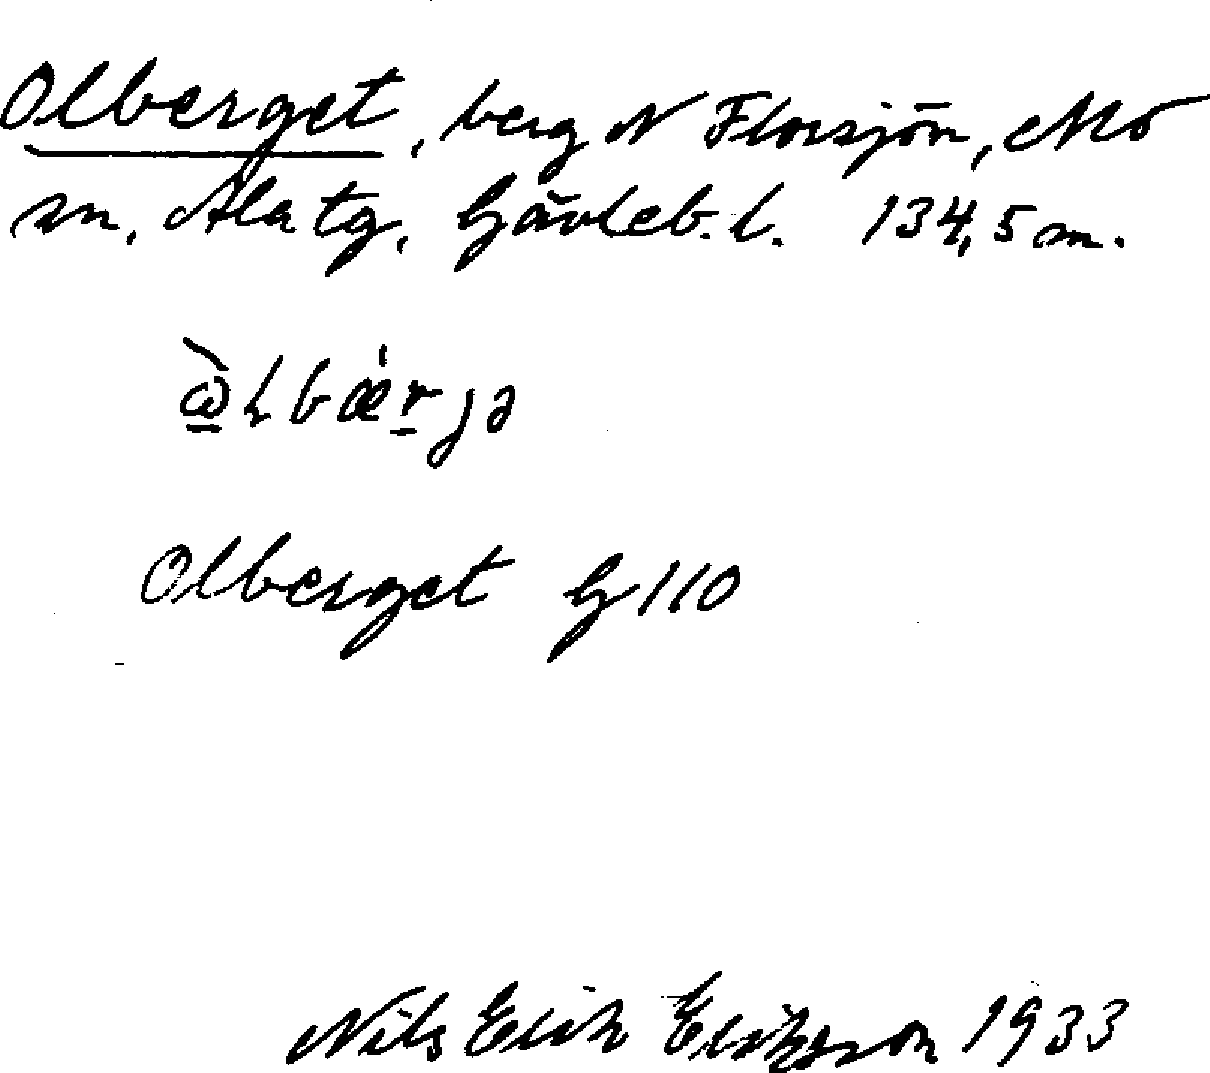 Olberget, berg N Florsjön, Mo
sn, Ala tg, Gävleb. l. 134,5 m.
Olberget G 110
Nils Erik Eriksson 1933